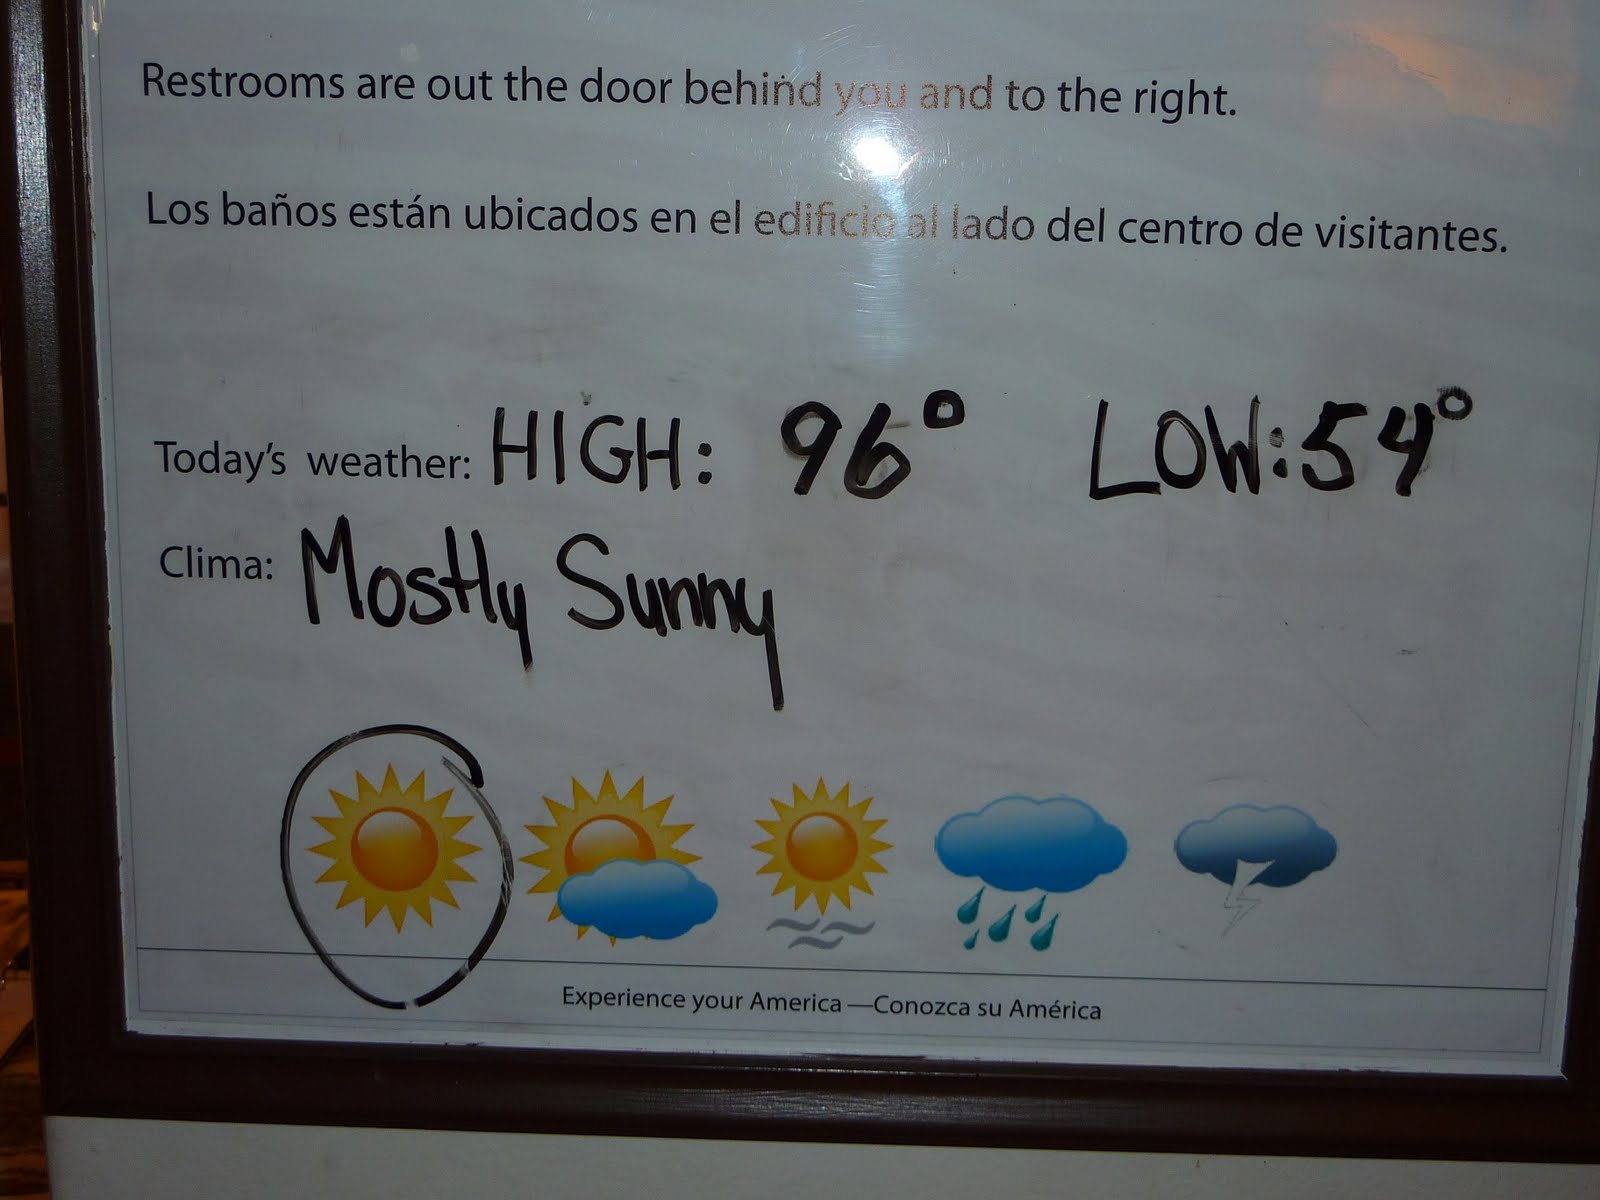 Restrooms are out the door behind you and to the right.
Los baños están ubicados en el edificio al lado del centro de visitantes.
Today's weather: HIGH: 96° LOW: 54°
Clima: Mostly Sunny
Experience your America —Conozca su América